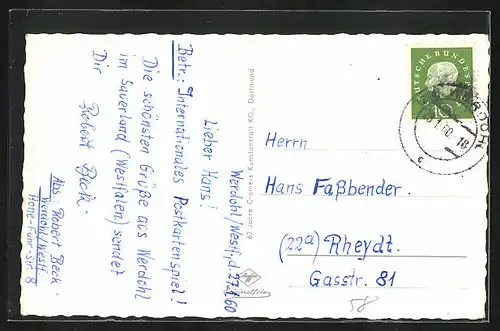 Werdohl/Westf., d. 27.1.60
Lieber Hans!
Betr.: Internationales Postkartenspiel!
Die schönsten Grüße aus Werdohl
im Sauerland (Westfalen) sendet
Dir
Robert Beck.
Abs.: Robert Beck.
Werdohl/Westf.
60 Jahre Cramers Kunstanstalt KG., Dortmund
DEUTSCHE BUNDESPOST
10
WERDOHL
Herrn
Hans Faßbender.
(22a) Rheydt.
Gasstr. 81
58
Agfa